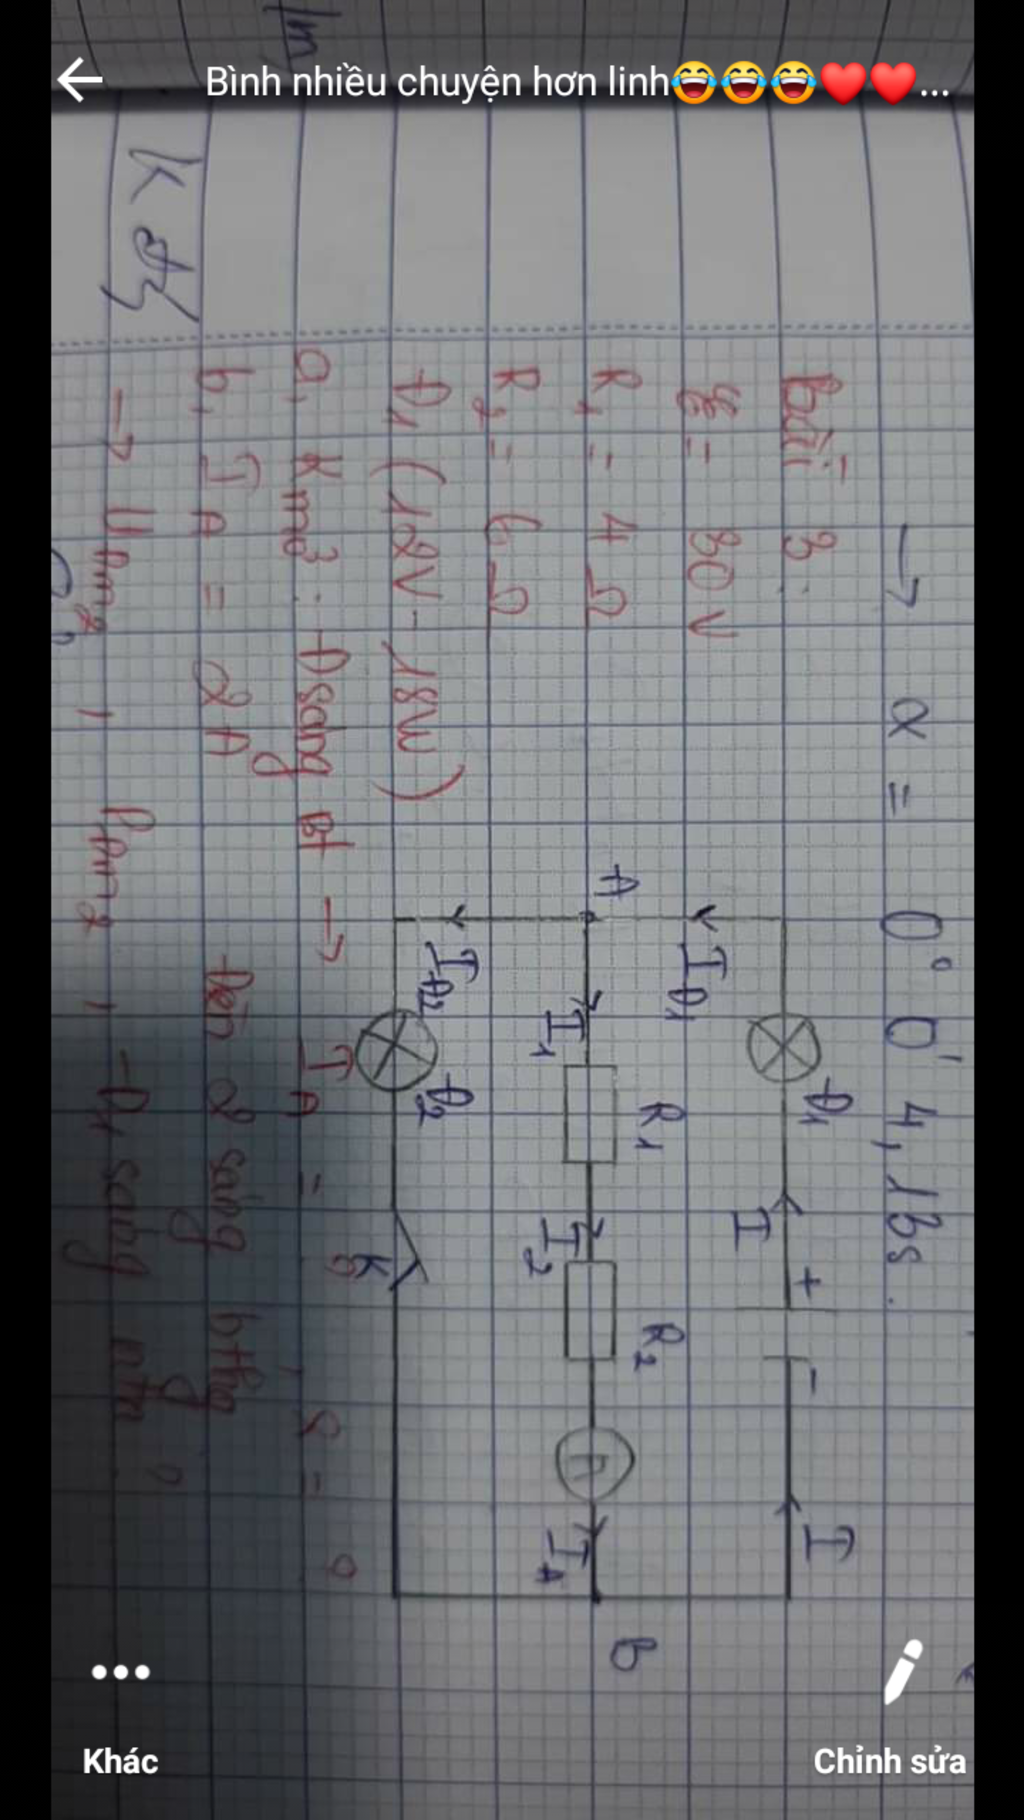 Bình nhiều chuyện hơn linh😂😂😂❤️❤️...
→ α = 0° 0' 4,18s.
Bài 3:
ξ = 30V
R₁ = 4Ω
R₂ = 6Ω
Đ₁ (12V - 18W)
a, K mở : Đ sáng bt → I A = ? , r = ?
b, I A = 2A Đèn 2 sáng bthg
→ U đm₂ , P đm₂ , Đ₁ sáng ntn ?
K đ
Đ₁
I
+
-
I
I Đ₁
A
I₁
R₁
I₂
R₂
A
I A
B
I Đ₂
Đ₂
K
Khác
Chỉnh sửa